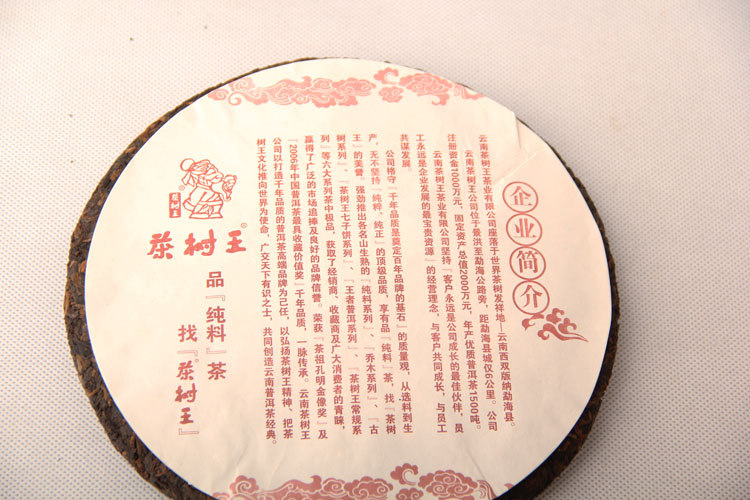 企业简介
云南茶树王茶业有限公司座落于世界茶树发祥地—云南西双版纳勐海县。
云南茶树王公司位于景洪至勐海公路旁，距勐海县城仅6公里。公司
注册资金1000万元，固定资产总值2000万元，年产优质普洱茶1500吨。
云南茶树王茶业有限公司坚持“客户永远是公司成长的最佳伙伴，员
工永远是企业发展的最宝贵资源”的经营理念，与客户共同成长，与员工
共谋发展。
公司恪守“千年品质是奠定百年品牌的基石”的质量观，从选料到生
产，无不坚持『纯粹、纯正』的顶级品质，享有品『纯料』茶，找『茶树
王』的美誉。强劲推出各名山生熟的『纯料系列』、『乔木系列』、『古
树系列』、『茶树王七子饼系列』、『王者普洱系列』、『茶树王常规系
列』等六大系列茶中极品，获取了经销商、收藏商及广大消费者的青睐，
赢得了广泛的市场追捧及良好的品牌信誉。荣获『茶祖孔明金像奖』及
『2006年中国普洱茶最具收藏价值奖』千年品质，一脉传承。云南茶树王
公司以打造千年品质的普洱茶高端品牌为己任，以弘扬茶树王精神、把茶
树王文化推向世界为使命，广交天下有识之士，共同创造云南普洱茶经典。
茶树王
茶树王
品『纯料』茶
找『茶树王』